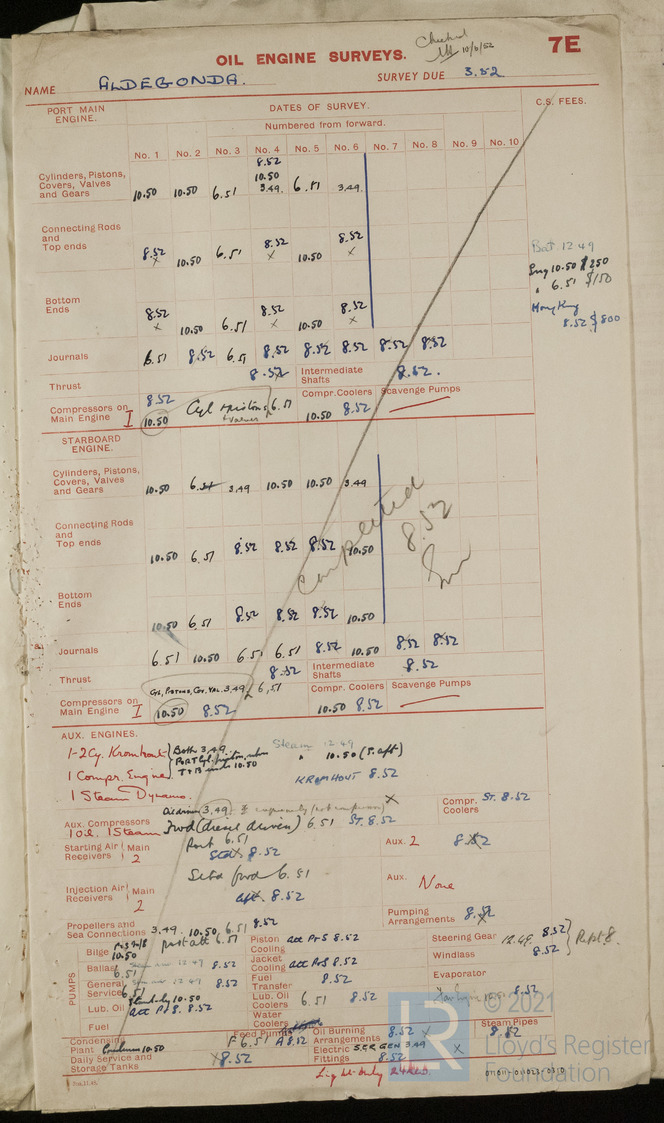 Checked
10/11/52
7E
OIL ENGINE SURVEYS.
NAME ALDEGONDA. SURVEY DUE 3.52
PORT MAIN ENGINE. DATES OF SURVEY. C.S. FEES.
Numbered from forward.
No. 1 No. 2 No. 3 No. 4 No. 5 No. 6 No. 7 No. 8 No. 9 No. 10
8.52
10.50
Cylinders, Pistons,
Covers, Valves
and Gears 10.50 10.50 6.51 3.49. 6.51 3.49.
Connecting Rods
and
Top ends 8.52 x 10.50 6.51 8.52 x 10.50 8.52 x
Bat 12 49
Eng 10.50 $250
" 6.51 $150
Hong Kong
8.52 $800
Bottom
Ends 8.52 x 10.50 6.51 8.52 x 10.50 8.52 x
Journals 6.51 8.52 6.51 8.52 8.52 8.52 8.52 8.52
Thrust 8.52 Intermediate Shafts 8.52.
Compressors on
Main Engine I 8.52 10.50 Cyl pistons valves 6.51 Compr. Coolers 10.50 8.52 Scavenge Pumps
STARBOARD
ENGINE.
Cylinders, Pistons,
Covers, Valves
and Gears 10.50 3.49 10.50 10.50 3.49
Completed
8.52
Connecting Rods
and
Top ends 10.50 6.51 8.52 8.52 8.52 10.50
Bottom
Ends 10.50 6.51 8.52 8.52 8.52 10.50
Journals 6.51 10.50 6.51 6.51 8.52 10.50 8.52 8.52
Thrust 8.52 Intermediate Shafts 8.52
Compressors on
Main Engine I Cyl, Pistons, Cov. Val. 3.49 6.51 10.50 8.52 Compr. Coolers 10.50 8.52 Scavenge Pumps
AUX. ENGINES.
1-2 Cy. Kromhout Both 3.49 Steam 12 49
1 Compr. Engine " 10.50 (S. aft)
T+B 10.50
KROMHOUT 8.52
1 Steam Dynamo.
Oil driven 3.49 x
Compr. Coolers ST. 8.52
Aux. Compressors
1 oil. 1 Steam Fwd (diesel driven) 6.51 ST. 8.52
Starting Air Receivers Main 2 Port 6.51 Stbd 8.52 Aux. 2 8.52
Injection Air Receivers Main 2 Stbd fwd 6.51 aft. 8.52 Aux. None
Pumping Arrangements 8.52
Propellers and
Sea Connections 3.49. 10.50, 6.51 8.52
PUMPS
Bilge 10.50 port aft 6.51 Piston Cooling att P+S 8.52 Steering Gear 12.49. 8.52 Rept 8.
Ballast 6.51 12 49 8.52 Jacket Cooling att P+S 8.52 Windlass 8.52
General Service 6.51 12 49 8.52 Fuel Transfer 8.52 Evaporator
Lub. Oil Standby 10.50 att P+S. 8.52 Lub. Oil Coolers 6.51 8.52 8.52
Fuel Water Coolers
Condensing
Plant Condenser 10.50 Feed Pumps F 6.51 A 8.52 Oil Burning Arrangements 8.52 x Steam Pipes 8.52
Daily Service and
Storage Tanks x 8.52 Electric Fittings S.E.R GEN 3.49 8.52 x
© 2021
LR
Lloyd's Register
Foundation